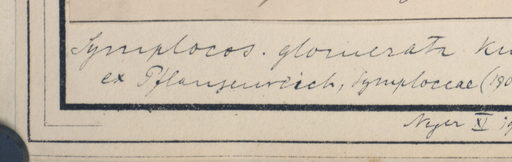 Symplocos. glomerata Ki
ex Pflanzenreich, Symploccae (190
XI 19